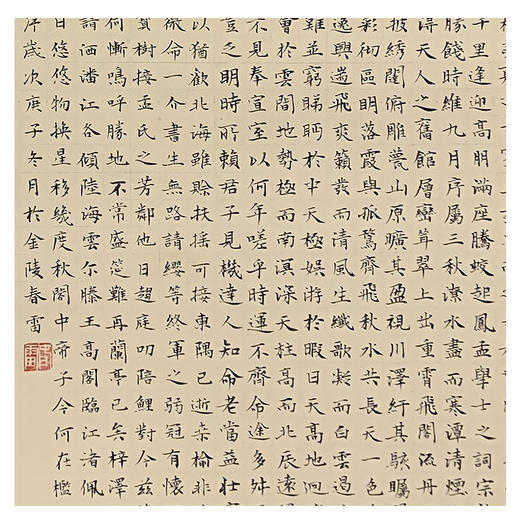 千里逢迎高朋滿座騰蛟起鳳孟學士之詞宗
勝餞時維九月序屬三秋潦水盡而寒潭清煙
得天人之舊館層巒聳翠上出重霄飛閣流丹
披綉闥俯雕甍山原曠其盈視川澤紆其駭矚
彩彻區明落霞與孤鶩齊飛秋水共長天一色
逸興遄飛爽籟發而清風生纖歌凝而白雲遏
難並窮睇眄於中天極娛遊於暇日天高
會於雲間地勢極而南溟深天柱高而北辰遠
不見奉宣室以何年嗟乎時運不齊命途多舛
豈乏明時所賴君子見機達人知命老當益壯
以猶歡北海雖賒扶搖可接東隅已逝桑榆非
微命一介書生無路請纓等終軍之弱冠有懷
寶樹接孟氏之芳鄰他日趨庭叨陪鯉對今茲
何慚鳴呼勝地不常盛筵難再蘭亭已矣梓澤
請洒潘江各傾陸海雲尔滕王高閣臨江渚佩
日悠悠物換星移幾度秋閣中帝子今何在檻
序歲次庚子冬月於金陵春雷